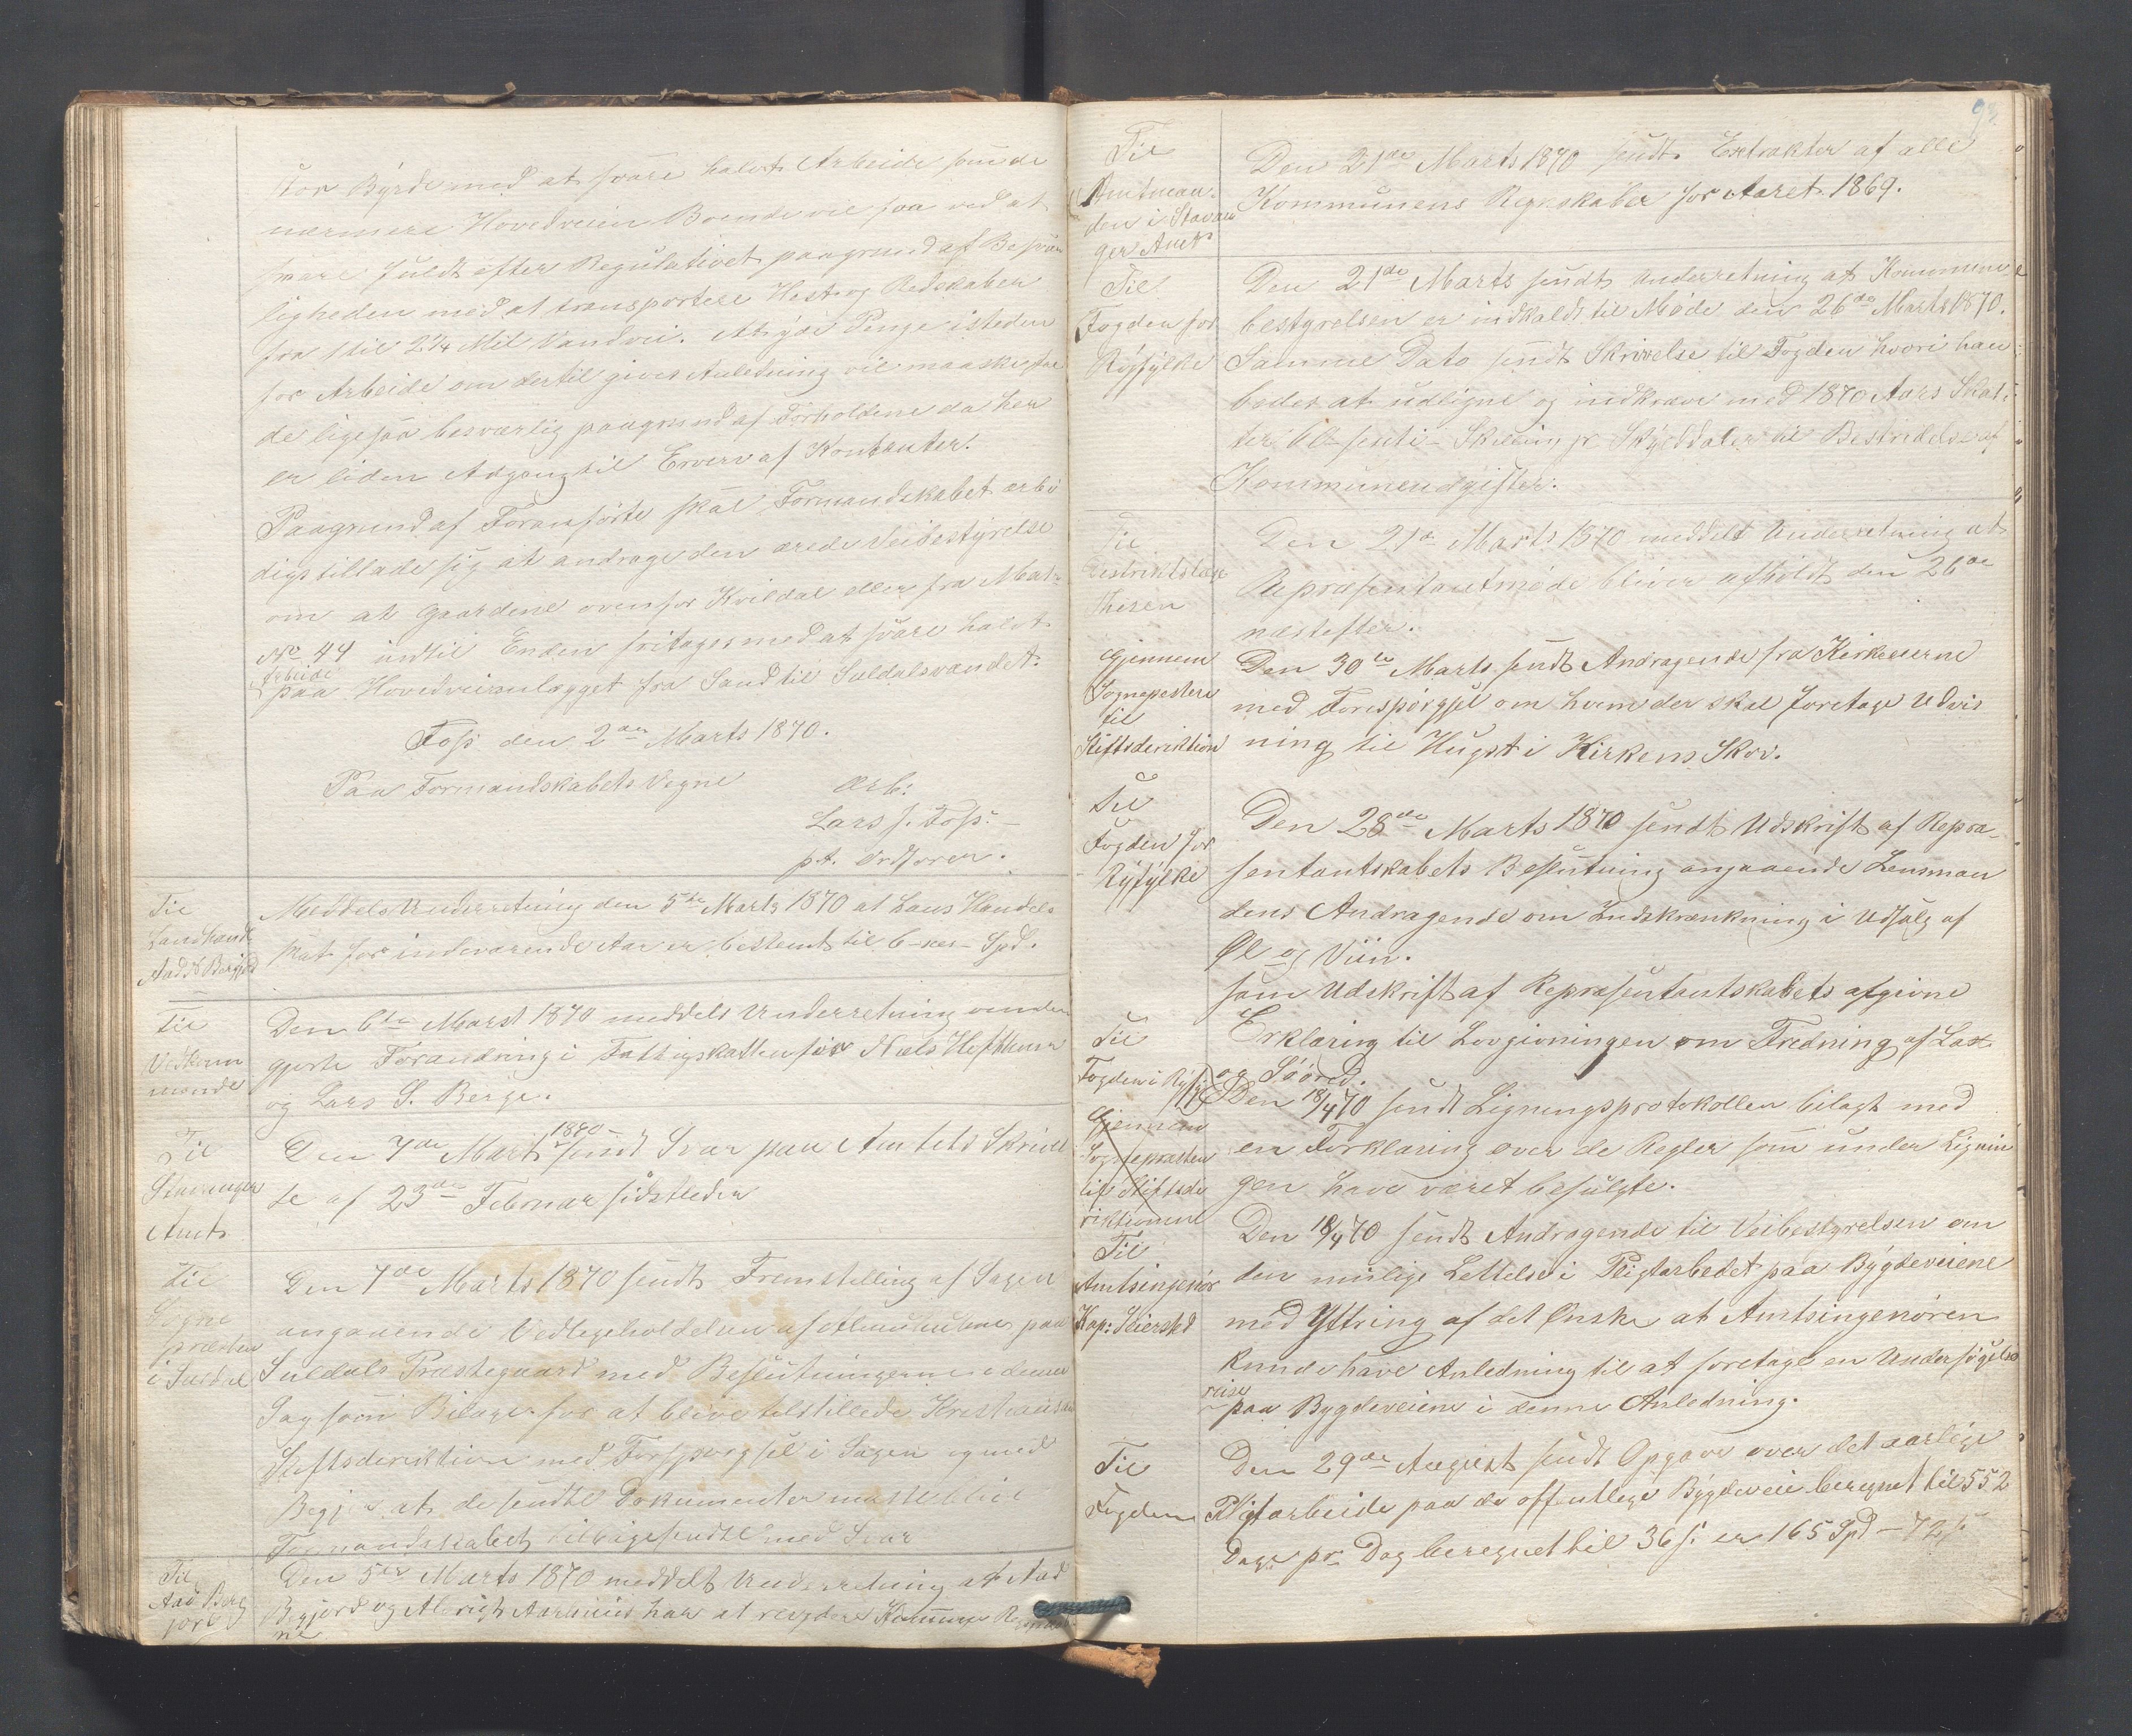 stor Byrde med at svare halvt Arbeide som de
nærmere Hovedveien Boende vil faa ved at
svare fuldt efter Regulativet paagrund af Besvær
ligheden med at transportere Hest og Redskaber
fra 1 til 2 1/4 Mil Vandvei. At yde Penge isteden
for Arbeide om dertil gives Anledning vil maaske
de ligesaa besværlig paagrund af Forholdene da her
er liden Adgang til Erverv af Kontanter.
Paagrund af Foranførte skal Formandskabet ærbø
digst tillade sig at andrage den ærede Veibestyrelse
om at Gaardene ovenfor Kvildal eller fra Mat-
No 44 indtil Enden fritages med at svare halvt
Arbeide
paa Hovedveianlægget fra Sand til Suldalsvandet.
Foss den 2den Marts 1870.
Paa Formandskabets Vegne
Ærb:
Lars J. Foss.
p.t. Ordfører.
Til
Landhandl
Aad N Bergjord
Meddelt Underretning den 5te Marts 1870 at hans Handels
skat for indeværende Aar er bestemt til 6-sex- Spd.
Til
Vedkom
mende
Den 6te Marst 1870 meddelt Underretning om den
gjorte Forandring i Fattigskatten for Niels
og Lars S. Berge.
Til
Stavanger
Amt
Den 7de Marts 1870 sendt Svar paa Amtets Skrivel
se af 23de Februar sidstleden
Til
Sogne
præsten
i Suldal
Den 7de Marts 1870 sendt Fremstilling af Sagen
angaaende Vedligeholdelsen af paa
Suldals Præstegaard med Beslutningerne i denne
Sag som Bilage for at blive tilstillede Kristiansa
Stiftsdirektion med Forspørgsel i Sagen og med
Begjær at de sendte Dokumenter maatte blive
Formandskabet tilbagesendte med Svar
Til
Aad Berg
jord
Den 5te Marts 1870 meddelt Underretning at Aad
Bergjord og har at revidere Kommune Regnskab
ne
92
Til
Amtman
den i Stavan
ger Amt
Den 21de Marts 1870 sendt Extrakter af alle
Kommunens Regnskaber for Aaret 1869.
Til
Fogden for
Ryfylke
Den 21de Marts sendt Underretning at Kommune
bestyrelsen er indkaldt til Møde den 26de Marts 1870.
Samme Dato sendt Skrivelse til Fogden hvori han
bedes at udligne og indkræve med 1870 Aars Skat-
ter Skilling pr Skylddaler til Bestridelse af
Kommuneudgifter.
Til
Distriktslæge
Thisen
Den 21de Marts 1870 meddelt Underretning at
Repræsentantmøde bliver afholdt den 26de
næstefter.
Gjennem
Sognepræsten
til
Stiftsdirektion
Den 30te Marts sendt Andragende fra Kirkeeierne
med Forespørgsel om hvem der skal foretage Udvis
ning til Hugst i Kirkens Skov.
Til
Fogden for
Ryfylke
Den 28de Marts 1870 sendt Udskrift af Repræ-
sentantskabets Beslutning angaaende Lensman
dens Andragende om Indskrænkning i Udsalg af
Øl og Viin.
som Udskrift af Repræsentantskabets afgivne
Erklæring til Lovgivningen om Fredning af Lax
og Søørred.
Til
Fogden i Ryfylke
Den 18/4 70 sendt Ligningsprotokollen bilagt med
en Forklaring over de Regler som under Lignin
gen have været befulgte.
Gjennem
Sognepræsten
til Stiftsdi
riktionen
Til
Amtsingeniør
Kap: Seiersted
Den 18/4 70 sendt Andragende til Veibestyrelsen om
den mulige Lettelse i Pligtarbedet paa Bygdeveiene
med Yttring af det Ønske at Amtsingeniøren
kunde have Anledning til at foretage en Undersøgelse
reise
paa Bygdeveiene i denne Anledning.
Til
Fogden
Den 29de August sendt Opgave over det aarlige
Pligtarbeide paa de offentlige Bygdeveie beregnet til 552
Dage pr Dag beregnet til 36 s. er 165 Spd - 72 s.